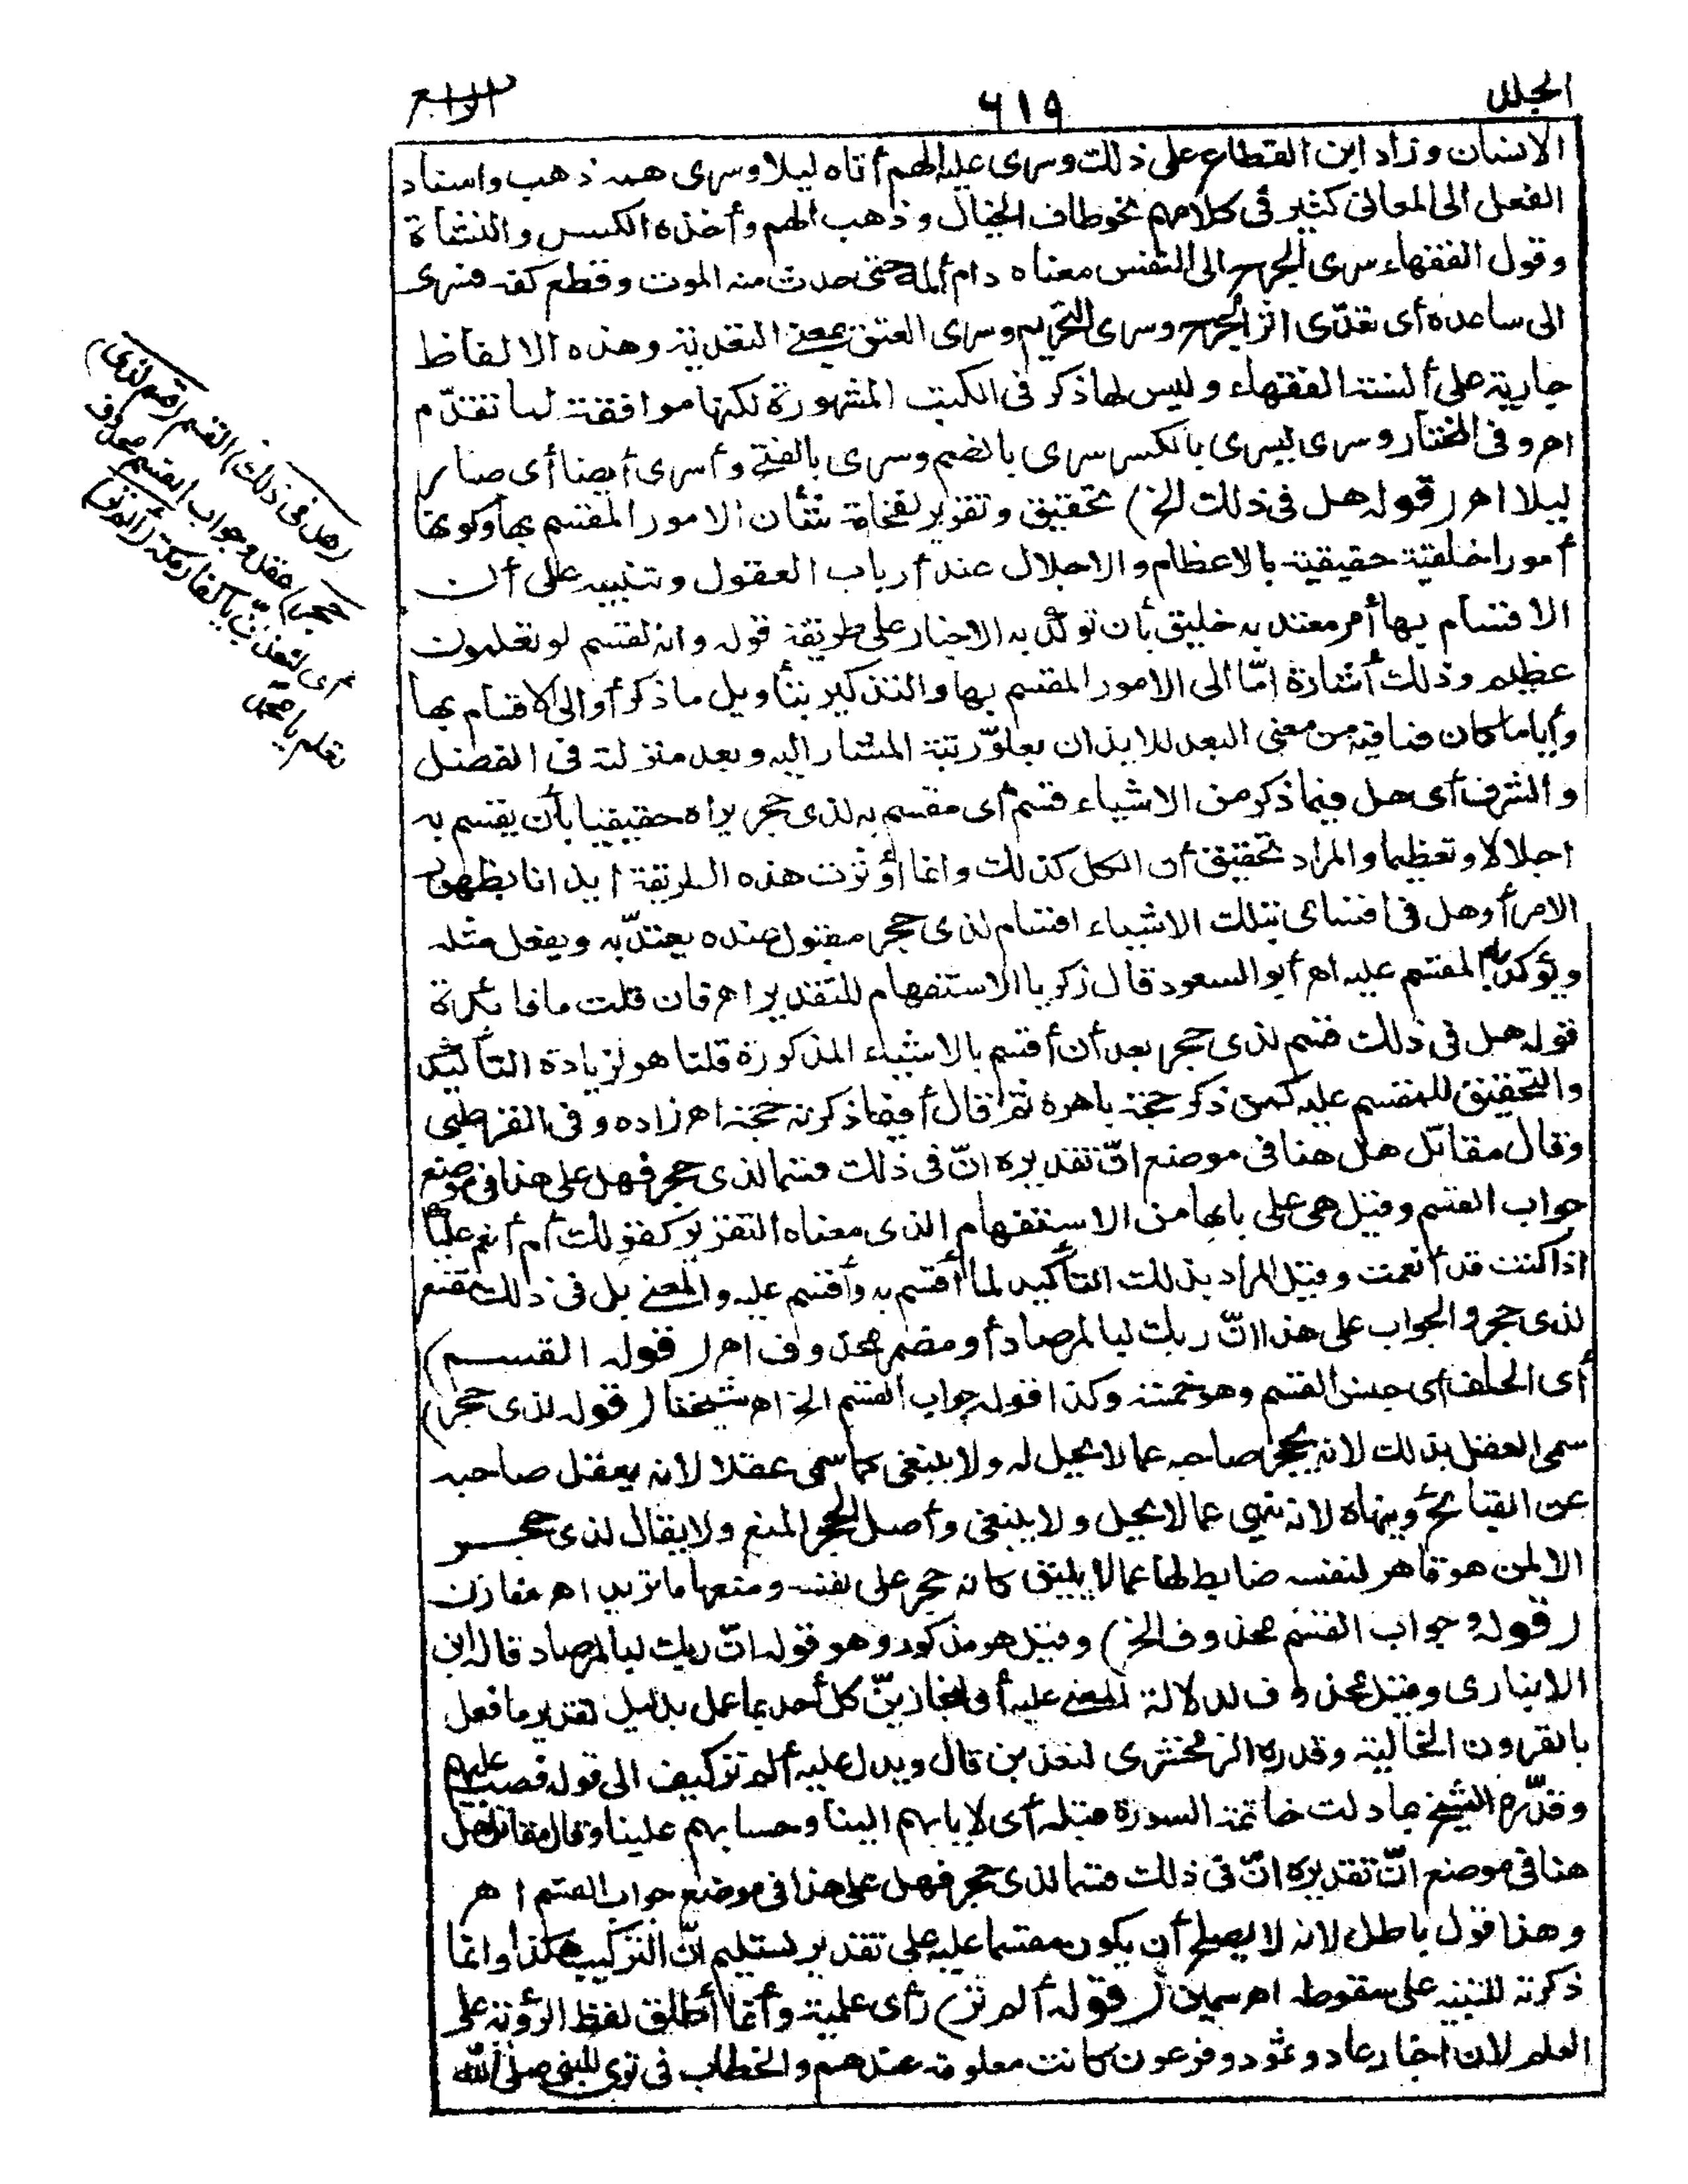 الجلد ٦١٩ الرابع
الانسان وزاد ابن القطاع على ذلك وسرى عليه الهم أتاه ليلا وسرى همه ذهب واسناد
الفعل الى المعانى كثير فى كلامهم نحو طاف الخيال وذهب الهم وأخذه الكسل والنشاة
وقول الفقهاء سرى الجرح الى النفس معناه دام ألمه حتى حدث منه الموت وقطع كفه فسرى
الى ساعده أى تعدّى اثر الجرح وسرى التحريم وسرى العتق بمعنى التعدية وهذه الالفاظ
جارية على ألسنة الفقهاء وليس لها ذكر فى الكتب المشهورة لكنها موافقة لما تقدّم
اهر وفى المختار وسرى يسرى بالكسر سرى بالضم وسرى بالفتح وأسرى أيضا أى صار
ليلا اهر (قوله هل فى ذلك الخ) تحقيق وتقرير لفخامة شأن الامور المقسم بها وكونها
أمورا خليقة حقيقية بالاعظام والاجلال عند أرباب العقول وتنبيه على أن
الاقسام بها أمر معتد به خليق بأن تؤكد به الاخبار على طريقة قوله وانه لقسم لو تعلمون
عظيم وذلك أشارة امّا الى الامور المقسم بها والتذكير بتأويل ما ذكر أو الى الاقسام بها
وأياما كان فما فيه من معنى البعد للايذان بعلوّ رتبة المشار اليه وبعد منزلته فى الفضل
والشرف أى هل فيما ذكر من الاشياء قسم أى مقسم به لذى حجر يراه حقيقيا بأن يقسم به
اجلالا وتعظيما والمراد تحقيق أن الكل كذلك وانما أوثرت هذه الطريقة ايذانا بظهور
الامر أو هل فى اقسامى بتلك الاشياء اقسام لذى حجر مقبول عنده يعتدّ به ويفعل مثله
ويؤكد به المقسم عليه اهر أبو السعود قال زكريا الاستفهام للتقدير اهر فان قلت ما فائدة
قوله هل فى ذلك قسم لذى حجر بعد أن أقسم بالاشياء المذكورة قلنا هو لزيادة التأكيد
والتحقيق للمقسم عليه كمن ذكر حجة باهرة ثم قال أفيما ذكرته حجة اهر زاده وفى القرطبى
وقال مقاتل هل هنا فى موضع انّ تقديره انّ فى ذلك قسما لذى حجر فهل على هذا فى موضع
جواب القسم وقيل هى على بابها من الاستفهام الذى معناه التقرير كقولك ألم أنعم عليك
اذا كنت قد أنعمت وقيل المراد بذلك التأكيد لما أقسم به وأقسم عليه والمعنى بل فى ذلك مقنع
لذى حجر والجواب على هذا انّ ربك لبالمرصاد أو مضمر محذوف اهر (قوله القسم)
أى الحلف أى جنس القسم وهو خمسة وكذا قوله جواب القسم الخ اهر شيخنا (قوله لذى حجر)
سمى العقل بذلك لانه يحجر صاحبه عما لا يحل له ولا ينبغى كما سمى عقلا لانه يعقل صاحبه
عن القبائح وينهاه لانه ينهى عما لا يحل ولا ينبغى وأصل الحجر المنع ولا يقال لذى حجر
الا لمن هو قاهر لنفسه ضابط لها عما لا يليق كانه حجر على نفسه ومنعها ما تريد اهر خازن
(قوله وجواب القسم محذوف الخ) وقيل هو مذكور وهو قوله انّ ربك لبالمرصاد قاله ابن
الانبارى وقيل محذوف لدلالة المعنى عليه أى لنجازينّ كل أحد بما عمل بدليل تقدير ما فعل
بالقرون الخالية وقدره الزمخشرى لنعذبن قال ويدل عليه ألم تر كيف الى قوله فصب عليهم
وقدّره الشيخ بما دلت خاتمة السورة قبله أى لايابهم الينا وحسابهم علينا وقال مقاتل هل
هنا فى موضع انّ تقديره انّ فى ذلك قسما لذى حجر فهل على هذا فى موضع جواب القسم اهر
وهذا قول باطل لانه لا يصلح أن يكون مقسما عليه على تقدير تسليم انّ التركيب هكذا وانما
ذكرته للتنبيه على سقوطه اهر سمين (قوله ألم تر) رأى علمية وأنما أطلق لفظ الرؤية على
العلم لان اخبار عاد وثمود وفرعون كانت معلومة عندهم والخطاب فى ترى للنبى صلى الله
(هل فى ذلك) القسم (قسم لذى
حجر) عقل وجواب القسم محذوف
أى لتعذبنّ يا كفار مكة (ألم تر)
تعلم يا محمّد